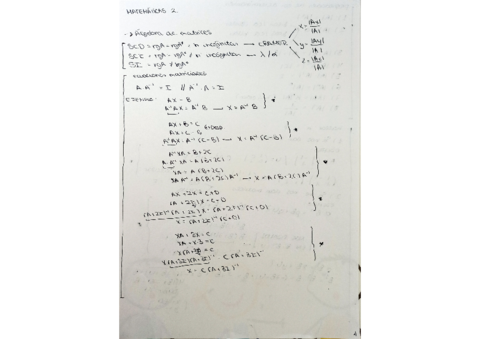 MATEMÁTICAS 2
→ Álgebra de matrices
SCD = rgA = rgA* = n incógnitas → CRAMER → x = |Ax| / |A|
y = |Ay| / |A|
z = |Az| / |A|
SCI = rgA = rgA* ≠ n incógnitas → λ
SI = rgA ≠ rgA*
Ecuaciones matriciales
A·A⁻¹ = I // A⁻¹·A = I
Ejemplos: AX = B
A⁻¹AX = A⁻¹B → X = A⁻¹B
AX + B = C
AX = C - B
A⁻¹AX = A⁻¹(C-B) → X = A⁻¹(C-B)
A⁻¹XA = B + 2C
A A⁻¹XA = A(B+2C)
XA = A(B+2C)
X = A(B+2C)A⁻¹
AX + 2X = C + D
(A+2I)X = C+D
(A+2I)⁻¹(A+2I)X = (A+2I)⁻¹(C+D)
X = (A+2I)⁻¹(C+D)
XA + 3X = C
XA + X·3 = C
X(A+3I) = C
X(A+3I)(A+3I)⁻¹ = C(A+3I)⁻¹
X = C(A+3I)⁻¹